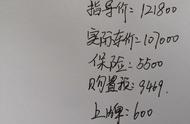 指导价=121800
实际车价=107000
保险=5500
购置税=9469
上牌=600